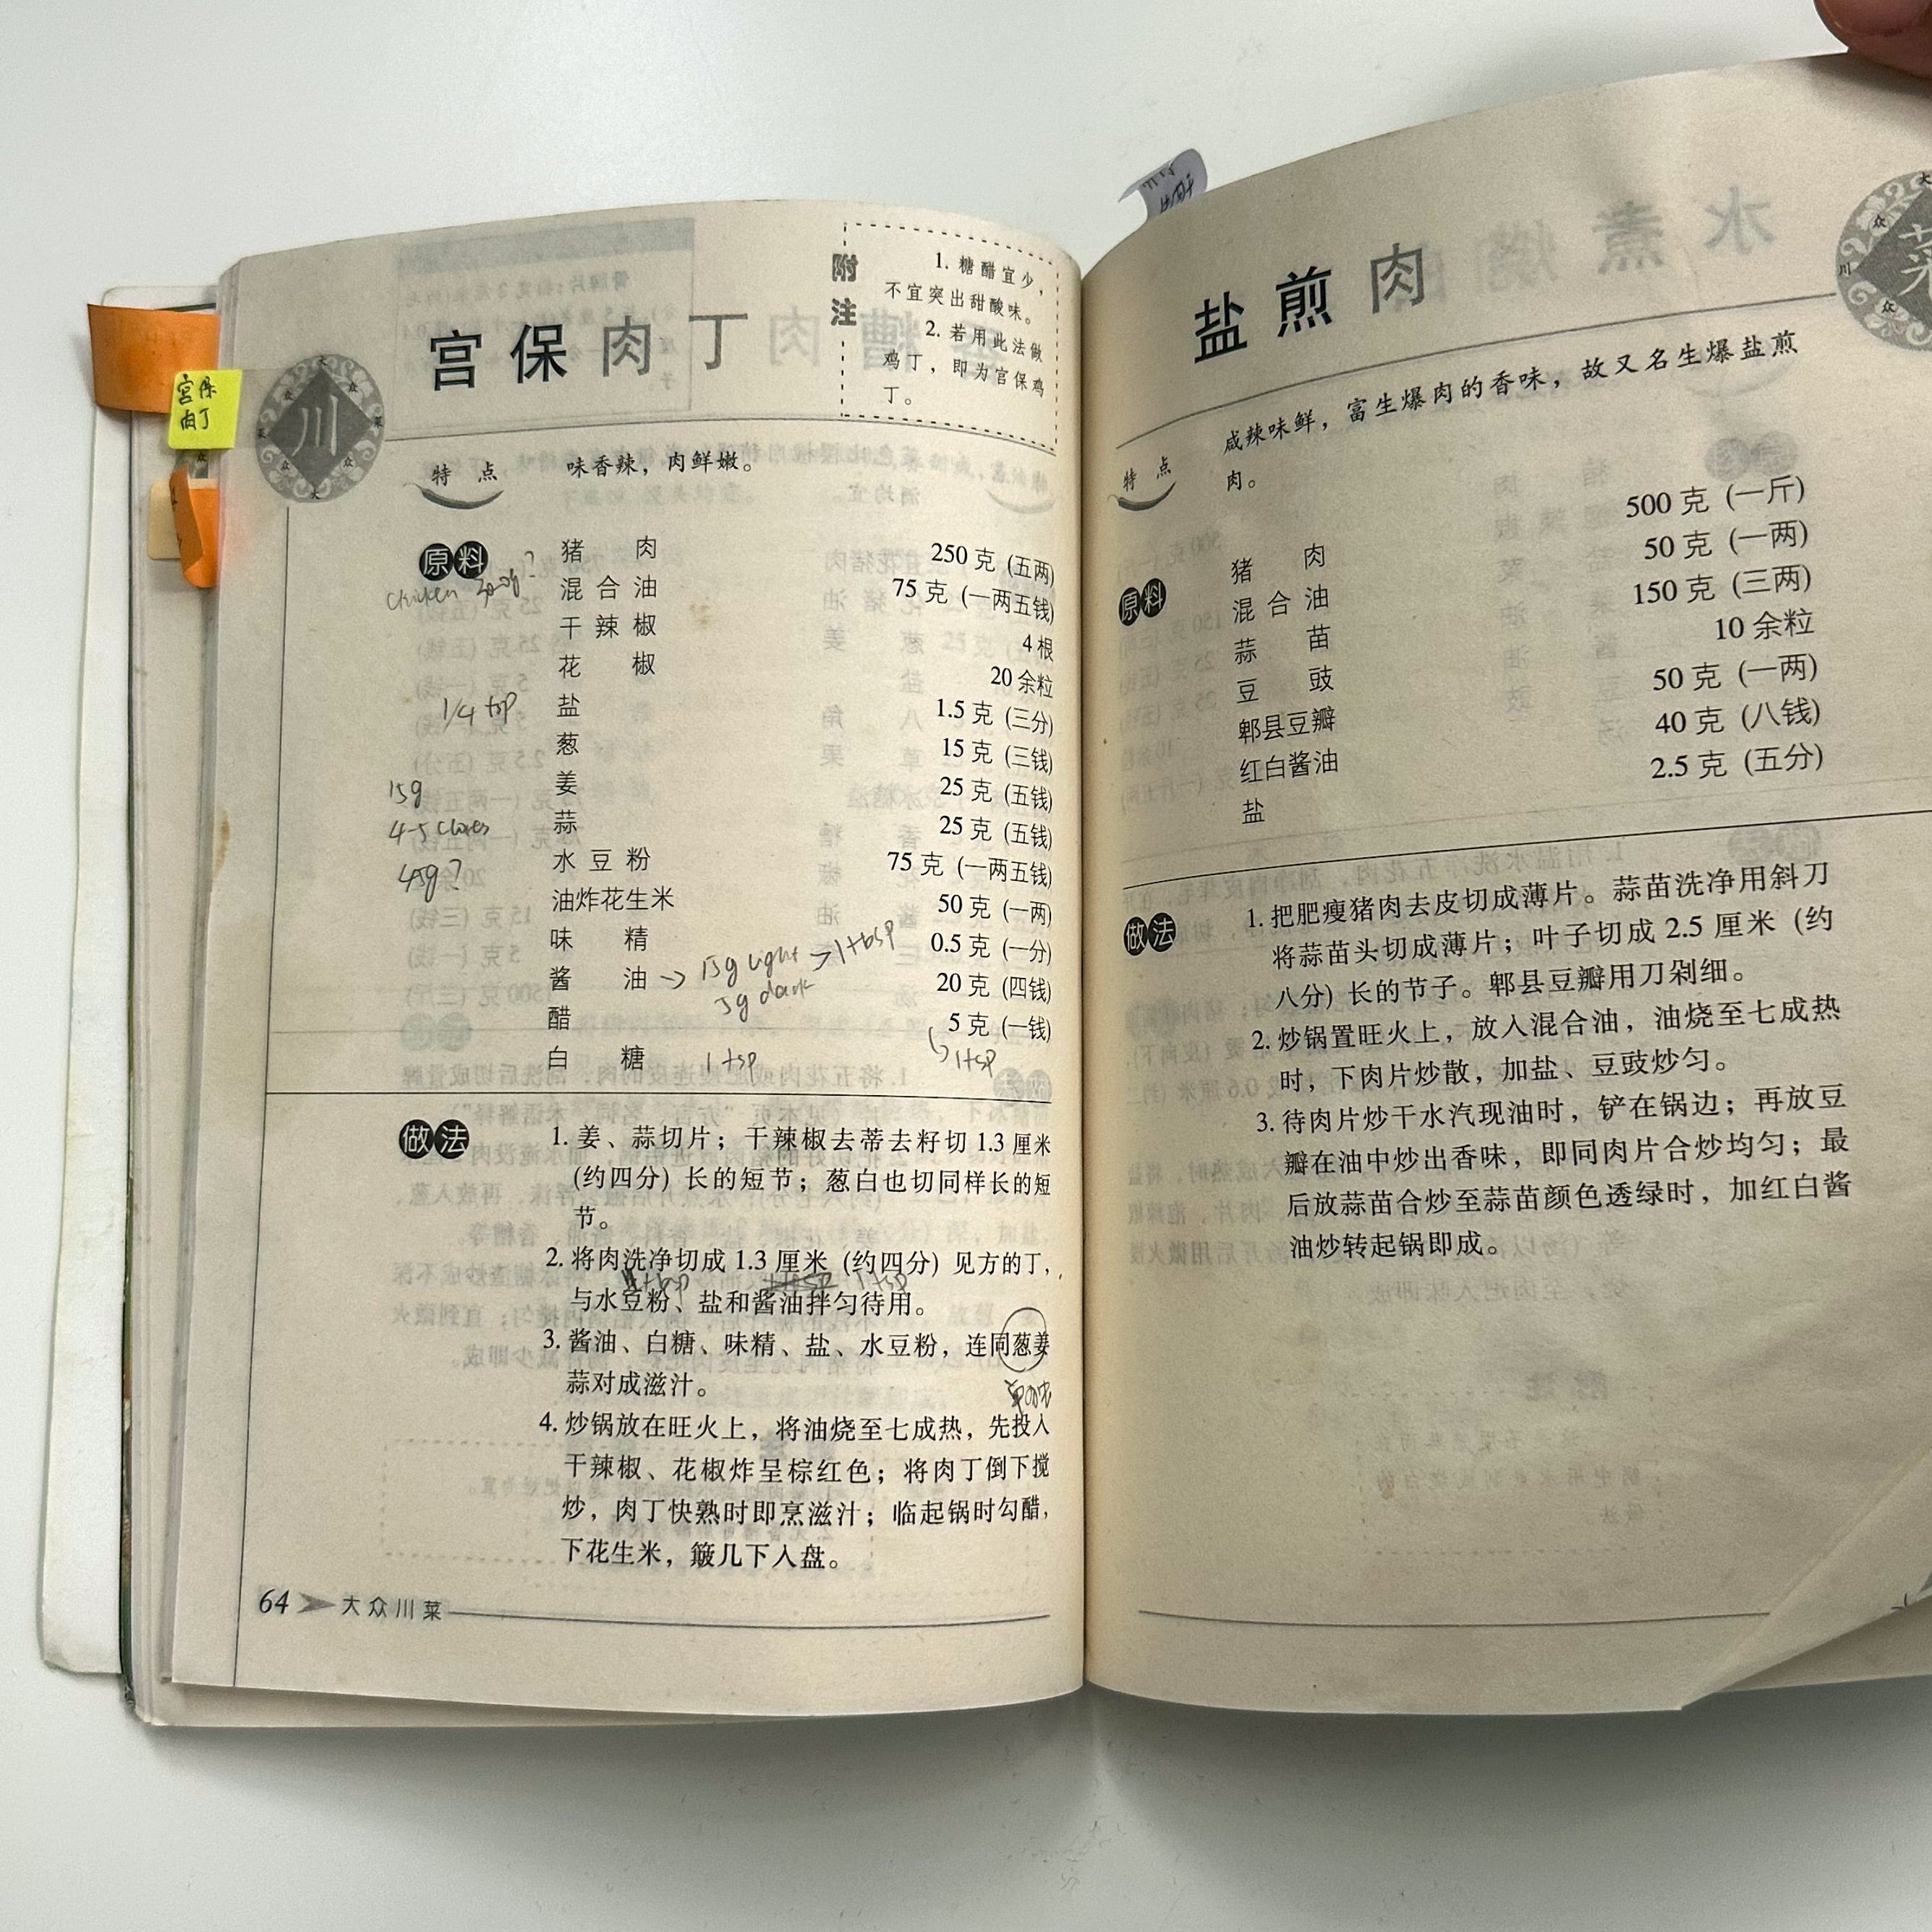 宫保
肉丁
川
宫保肉丁
附注
1. 糖醋宜少，
不宜突出甜酸味。
2. 若用此法做
鸡丁，即为宫保鸡
丁。
特点
味香辣，肉鲜嫩。
原料
猪肉 250 克 (五两)
chicken
混合油 75 克 (一两五钱)
干辣椒 4 根
花椒 20 余粒
1/4 tsp 盐 1.5 克 (三分)
葱 15 克 (三钱)
15g 姜 25 克 (五钱)
4-5 cloves 蒜 25 克 (五钱)
45g? 水豆粉 75 克 (一两五钱)
油炸花生米 50 克 (一两)
味精 0.5 克 (一分)
酱油 → 15g light > 1 tbsp 20 克 (四钱)
5g dark
醋 5 克 (一钱)
↳ 1 tsp
白糖 1 tsp
做法
1. 姜、蒜切片；干辣椒去蒂去籽切 1.3 厘米
(约四分) 长的短节；葱白也切同样长的短
节。
2. 将肉洗净切成 1.3 厘米 (约四分) 见方的丁，
1 tbsp 1 tsp
与水豆粉、盐和酱油拌匀待用。
3. 酱油、白糖、味精、盐、水豆粉，连同葱姜
蒜对成滋汁。
4. 炒锅放在旺火上，将油烧至七成热，先投入
干辣椒、花椒炸呈棕红色；将肉丁倒下搅
炒，肉丁快熟时即烹滋汁；临起锅时勾醋，
下花生米，簸几下入盘。
64 大众川菜
盐煎肉
菜
特点
咸辣味鲜，富生爆肉的香味，故又名生爆盐煎
肉。
原料
猪肉 500 克 (一斤)
混合油 50 克 (一两)
蒜苗 150 克 (三两)
豆豉 10 余粒
郫县豆瓣 50 克 (一两)
红白酱油 40 克 (八钱)
盐 2.5 克 (五分)
做法
1. 把肥瘦猪肉去皮切成薄片。蒜苗洗净用斜刀
将蒜苗头切成薄片；叶子切成 2.5 厘米 (约
八分) 长的节子。郫县豆瓣用刀剁细。
2. 炒锅置旺火上，放入混合油，油烧至七成热
时，下肉片炒散，加盐、豆豉炒匀。
3. 待肉片炒干水汽现油时，铲在锅边；再放豆
瓣在油中炒出香味，即同肉片合炒均匀；最
后放蒜苗合炒至蒜苗颜色透绿时，加红白酱
油炒转起锅即成。